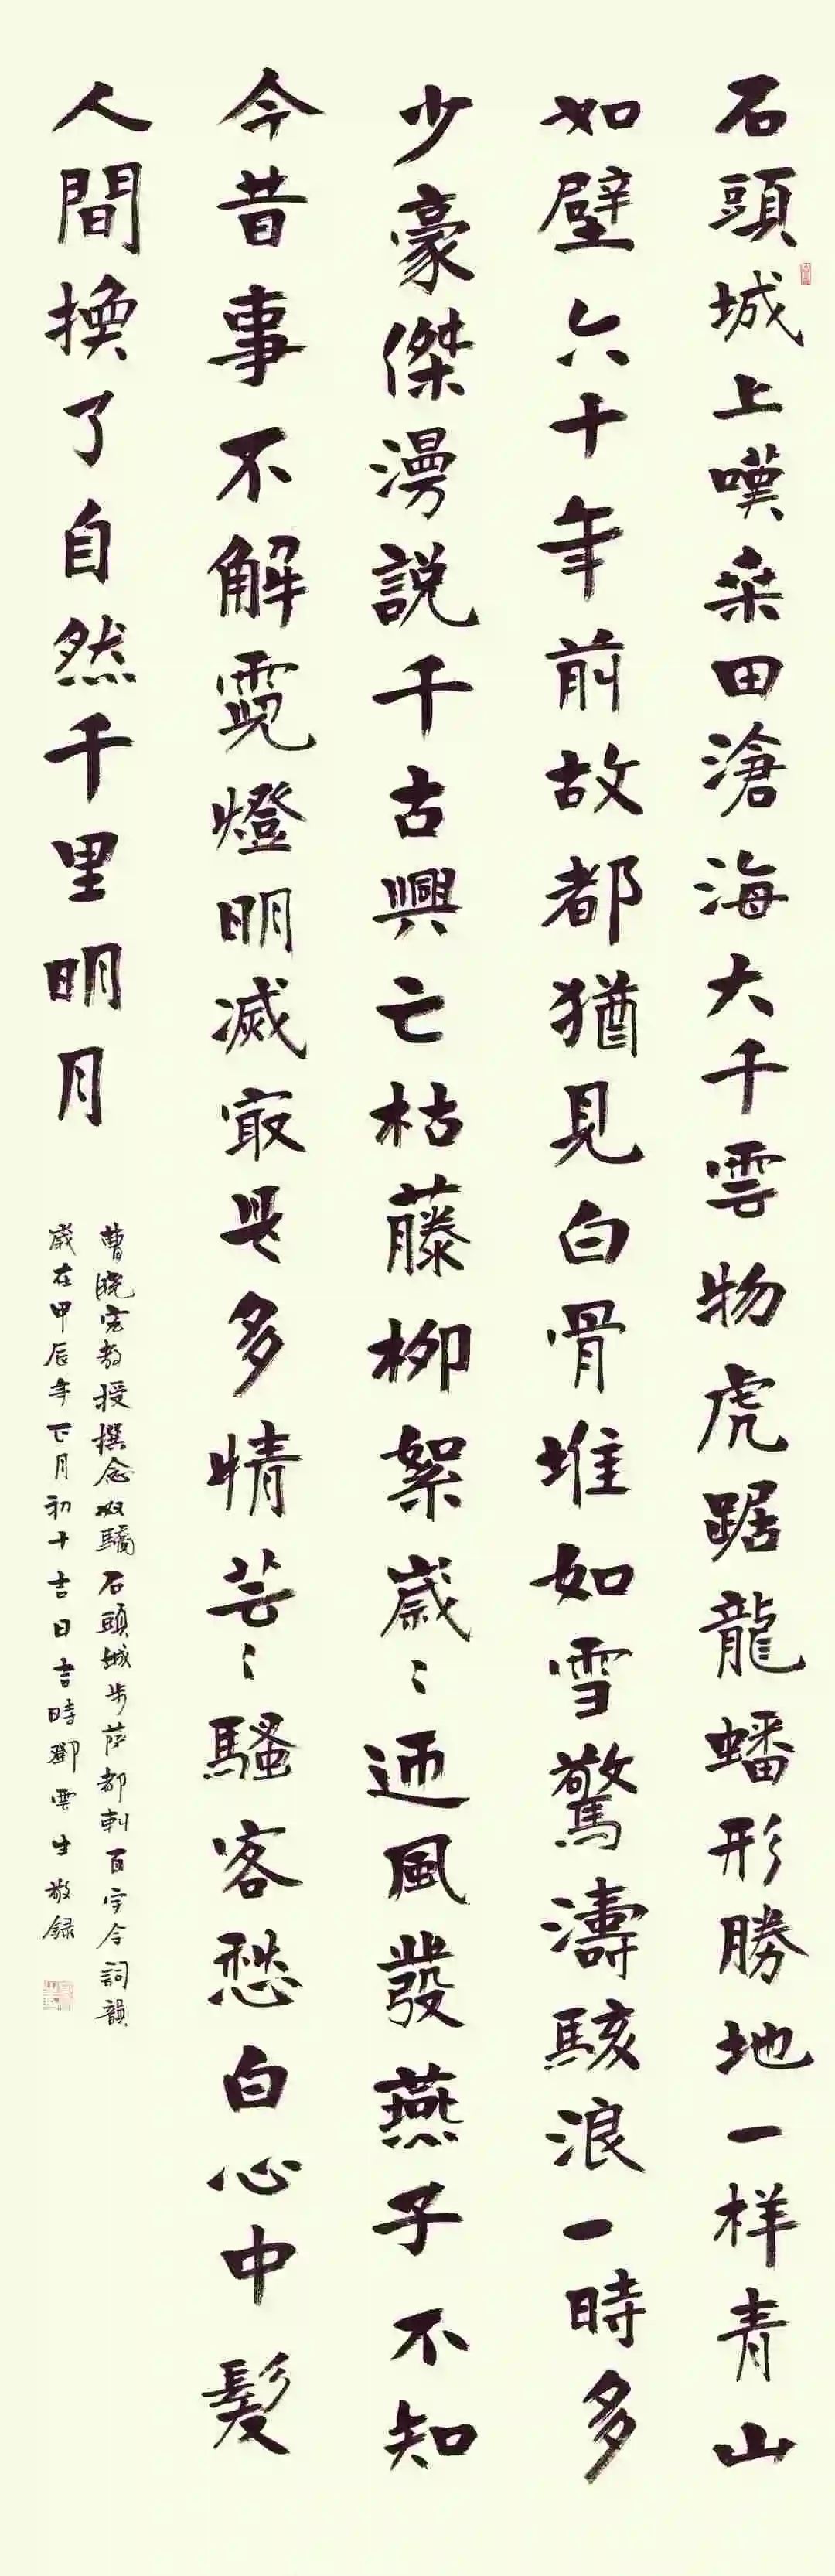 石頭城上嘆桑田滄海大千雲物虎踞龍蟠形勝地一样青山
如壁六十年前故都猶見白骨堆如雪驚濤駭浪一時多
少豪傑漫說千古興亡枯藤柳絮歲〻迊風發燕子不知
今昔事不解霓燈明滅寂是多情芸〻騷客愁白心中髮
人間換了自然千里明月
曹曉宏教授撰念奴驕石頭城步薩都剌百字令詞韻
歲在甲辰年正月初十吉日吉時鄧雲生敬録